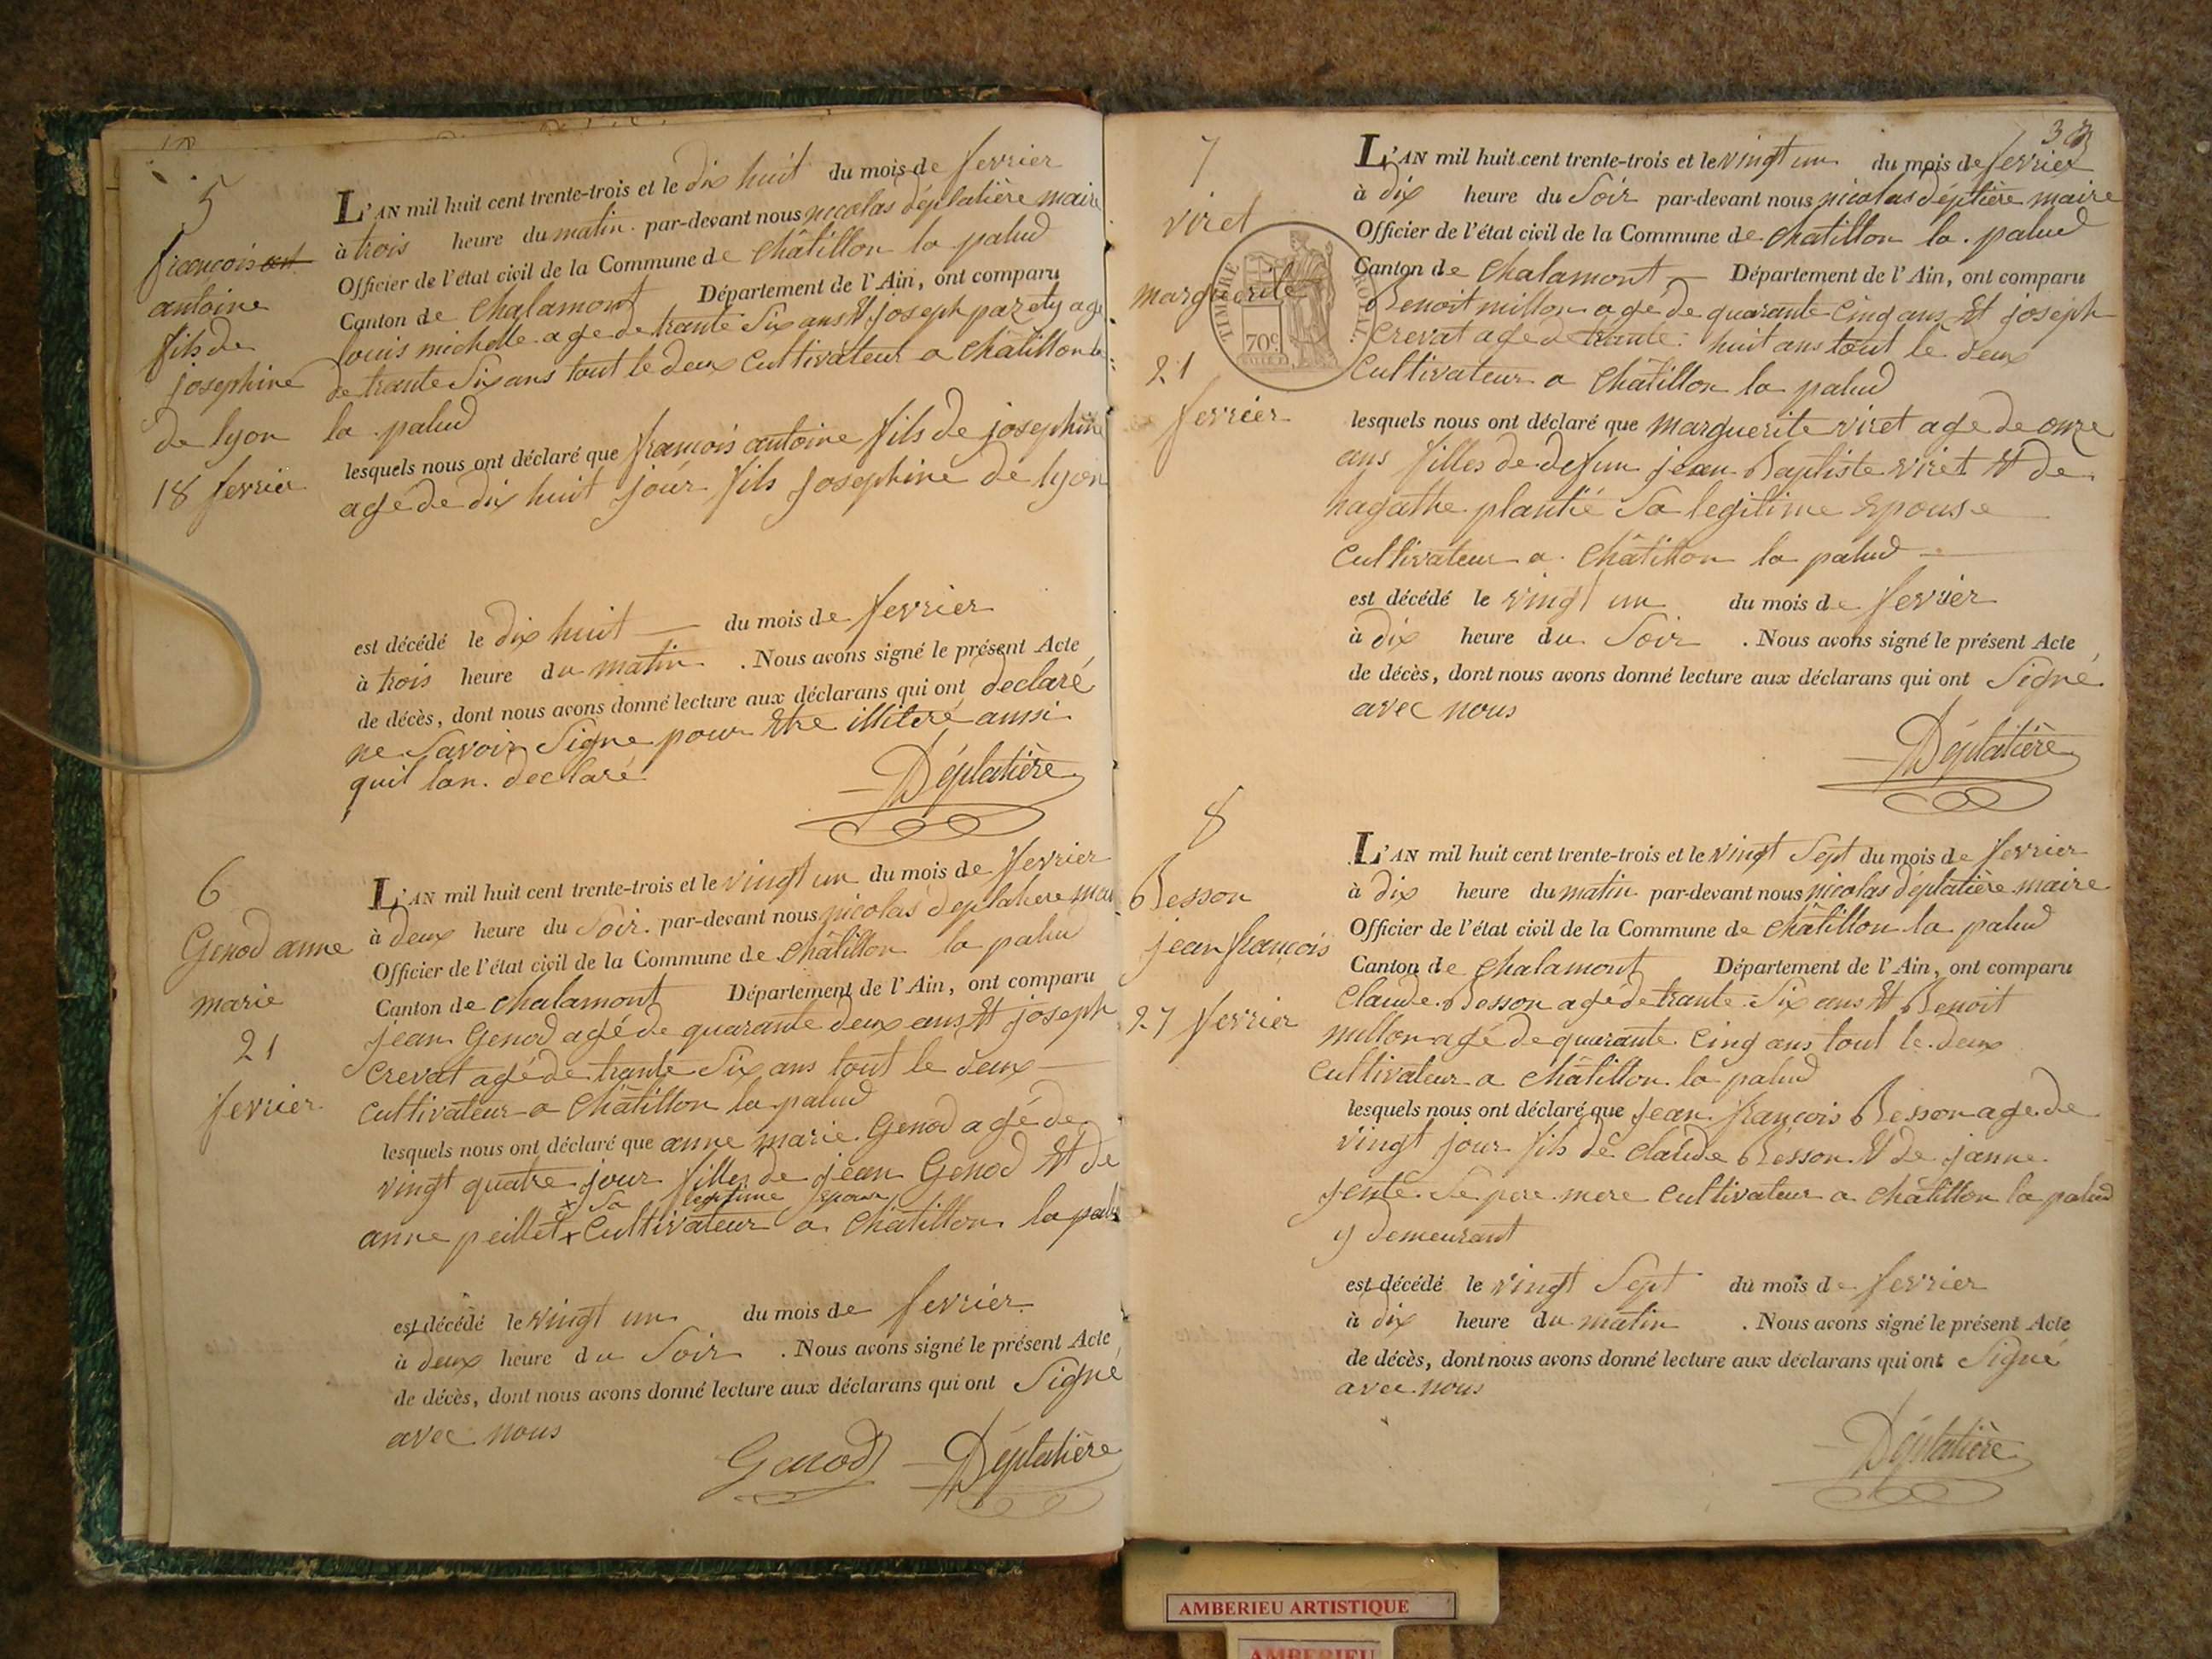 5
françois ant
antoine
fils de
josephine
de lyon
18 fevrier
L'AN mil huit cent trente-trois et le dix huit du mois de fevrier
à trois heure du matin par-devant nous nicolas déplatière maire
Officier de l'état civil de la Commune de châtillon la palud
Canton de chalamont Département de l'Ain, ont comparu
louis michelle age de trante Six ans Et joseph age
de trante Six ans tout le deux Cultivateur a châtillon la
la palud
lesquels nous ont déclaré que françois antoine fils de josephine
agé de dix huit jour fils josephine de lyon
est décédé le dix huit du mois de fevrier
à trois heure du matin . Nous avons signé le présent Acte
de décès, dont nous avons donné lecture aux déclarans qui ont declaré
ne Savoir Signe pour Etre illiteré aussi
quil lon declaré
Déplatière
6
Genod anne
marie
21
fevrier
L'AN mil huit cent trente-trois et le vingt un du mois de fevrier
à deux heure du Soir par-devant nous nicolas deplatiere mai
Officier de l'état civil de la Commune de châtillon la palud
Canton de chalamont Département de l'Ain, ont comparu
jean Genod agé de quarante deux ans Et joseph
Crevat agé de trante Six ans tout le deux
Cultivateur a châtillon la palud
lesquels nous ont déclaré que anne marie Genod agé de
vingt quatre jour filles de jean Genod Et de
x Sa legitime epouse
anne peillet x Cultivateur a châtillon la palu
est décédé le vingt un du mois de fevrier
à deux heure du Soir . Nous avons signé le présent Acte
de décès, dont nous avons donné lecture aux déclarans qui ont Signé
avec nous
Genod Déplatière
3
7
viret
marguerite
21
fevrier
TIMBRE ROYAL
70c
L'AN mil huit cent trente-trois et le vingt un du mois de fevrier
à dix heure du Soir par-devant nous nicolas déptière maire
Officier de l'état civil de la Commune de châtillon la palud
Canton de chalamont Département de l'Ain, ont comparu
Benoit millon agé de quarante Cinq ans Et joseph
Crevat age de trante huit ans tout le deux
Cultivateur a châtillon la palud
lesquels nous ont déclaré que marguerite viret age de onze
ans filles de defun jean Baptiste viret Et de
hagathe plantié Sa legitime Epouse
Cultivateur a châtillon la palud
est décédé le vingt un du mois de fevrier
à dix heure du Soir . Nous avons signé le présent Acte
de décès, dont nous avons donné lecture aux déclarans qui ont Signé
avec nous
Déplatière
8
Besson
jean françois
27 fevrier
L'AN mil huit cent trente-trois et le vingt Sept du mois de fevrier
à dix heure du matin par-devant nous nicolas déplatière maire
Officier de l'état civil de la Commune de châtillon la palud
Canton de chalamont Département de l'Ain, ont comparu
Claude Besson agé de trante Six ans Et Benoit
millon agé de quarante Cinq ans tout le deux
Cultivateur a châtillon la palud
lesquels nous ont déclaré que jean françois Besson age de
vingt jour fils de Claude Besson Et de janne
jente Se pere mere Cultivateur a châtillon la palud
y demeurant
est décédé le vingt Sept du mois de fevrier
à dix heure du matin . Nous avons signé le présent Acte
de décès, dont nous avons donné lecture aux déclarans qui ont Signé
avec nous
Déplatière
AMBERIEU ARTISTIQUE
AMBERIEU